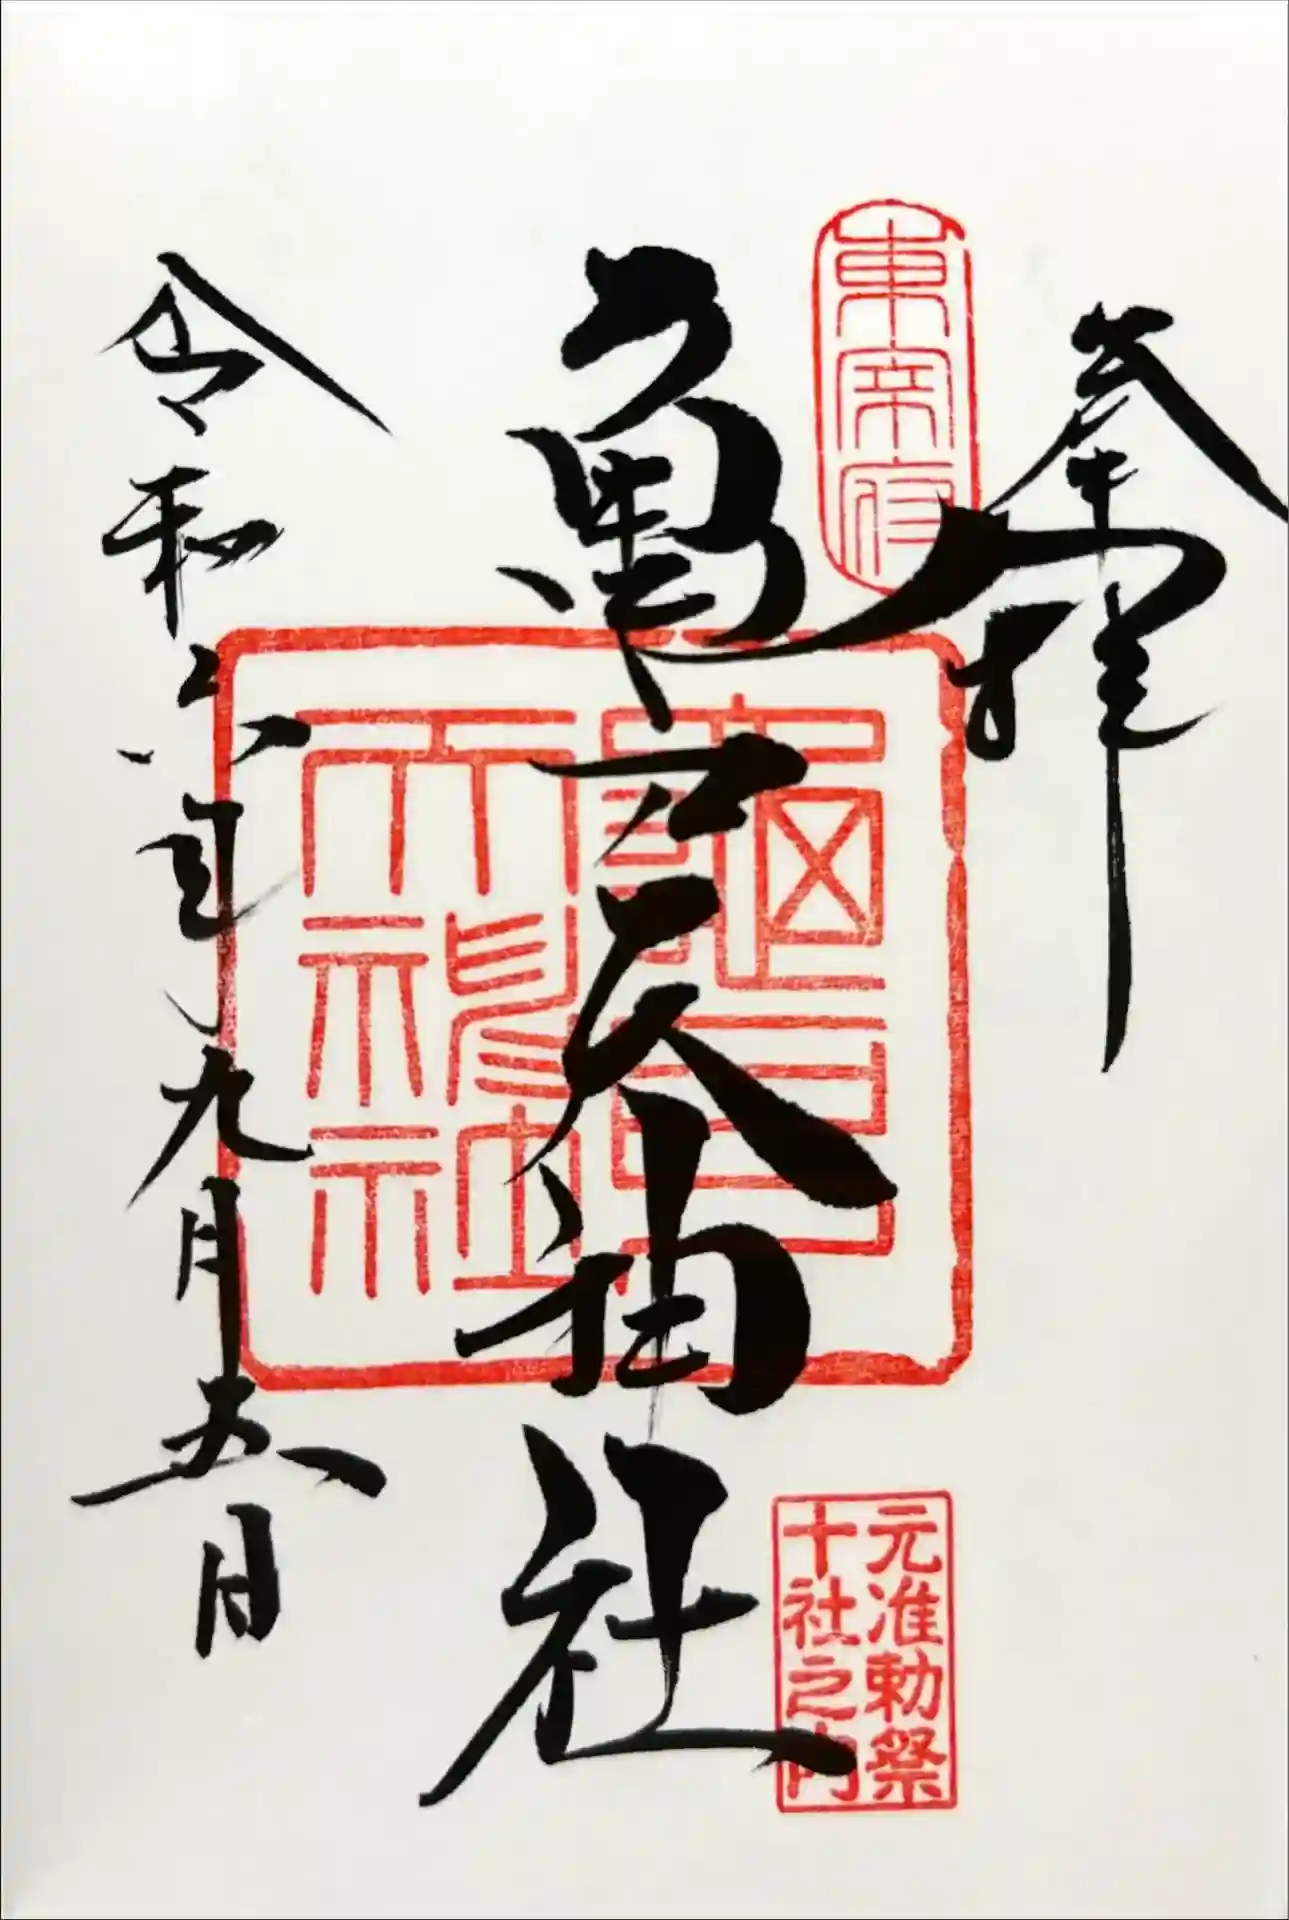 奉拝
東宰府
亀戸天神社
龜戸
天神社
元准勅祭
十社之内
令和六年九月五日